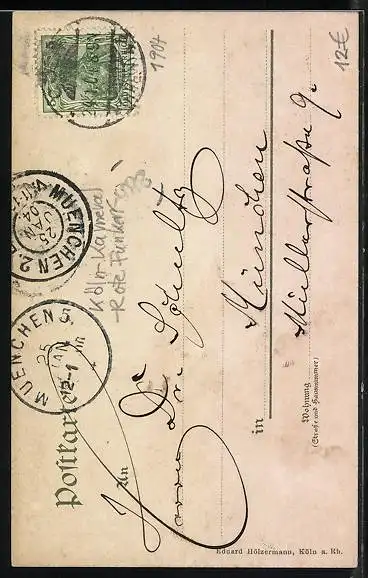 Postkarte
An
Herrn Dr. Schultz
in
München
Müllerstraße 9.
Wohnung
(Straße und Hausnummer)
Eduard Hölzermann, Köln a. Rh.
MUENCHEN 2.
25
JAN
04
MUENCHEN
12-1
1904
12€
Köln-Karneval
-Rote Funken-